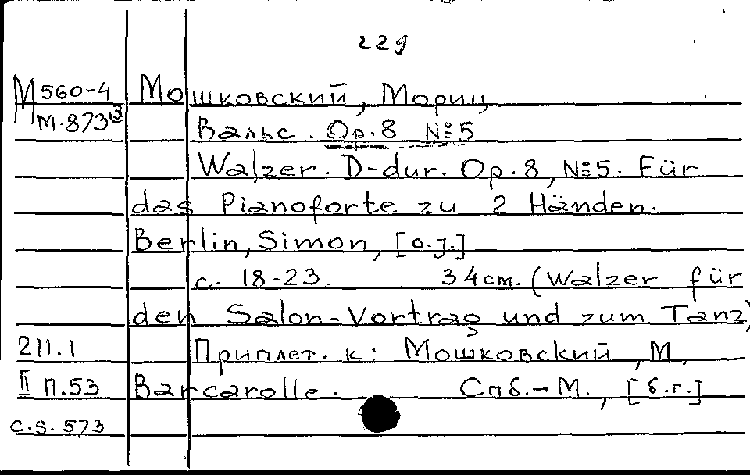 229
М560-4 Мошковский, Мориц
М.873
Вальс. Op.8 №5
Walzer. D-dur. Op.8, №5. Für
das Pianoforte zu 2 Händen.
Berlin, Simon, [o.J.]
с. 18-23. 34cm. (Walzer für
den Salon-Vortrag und zum Tanz)
211.1 Приплет. к: Мошковский, М.
II П.53 Barcarolle. Спб.-М., [б.г.]
C.S. 573